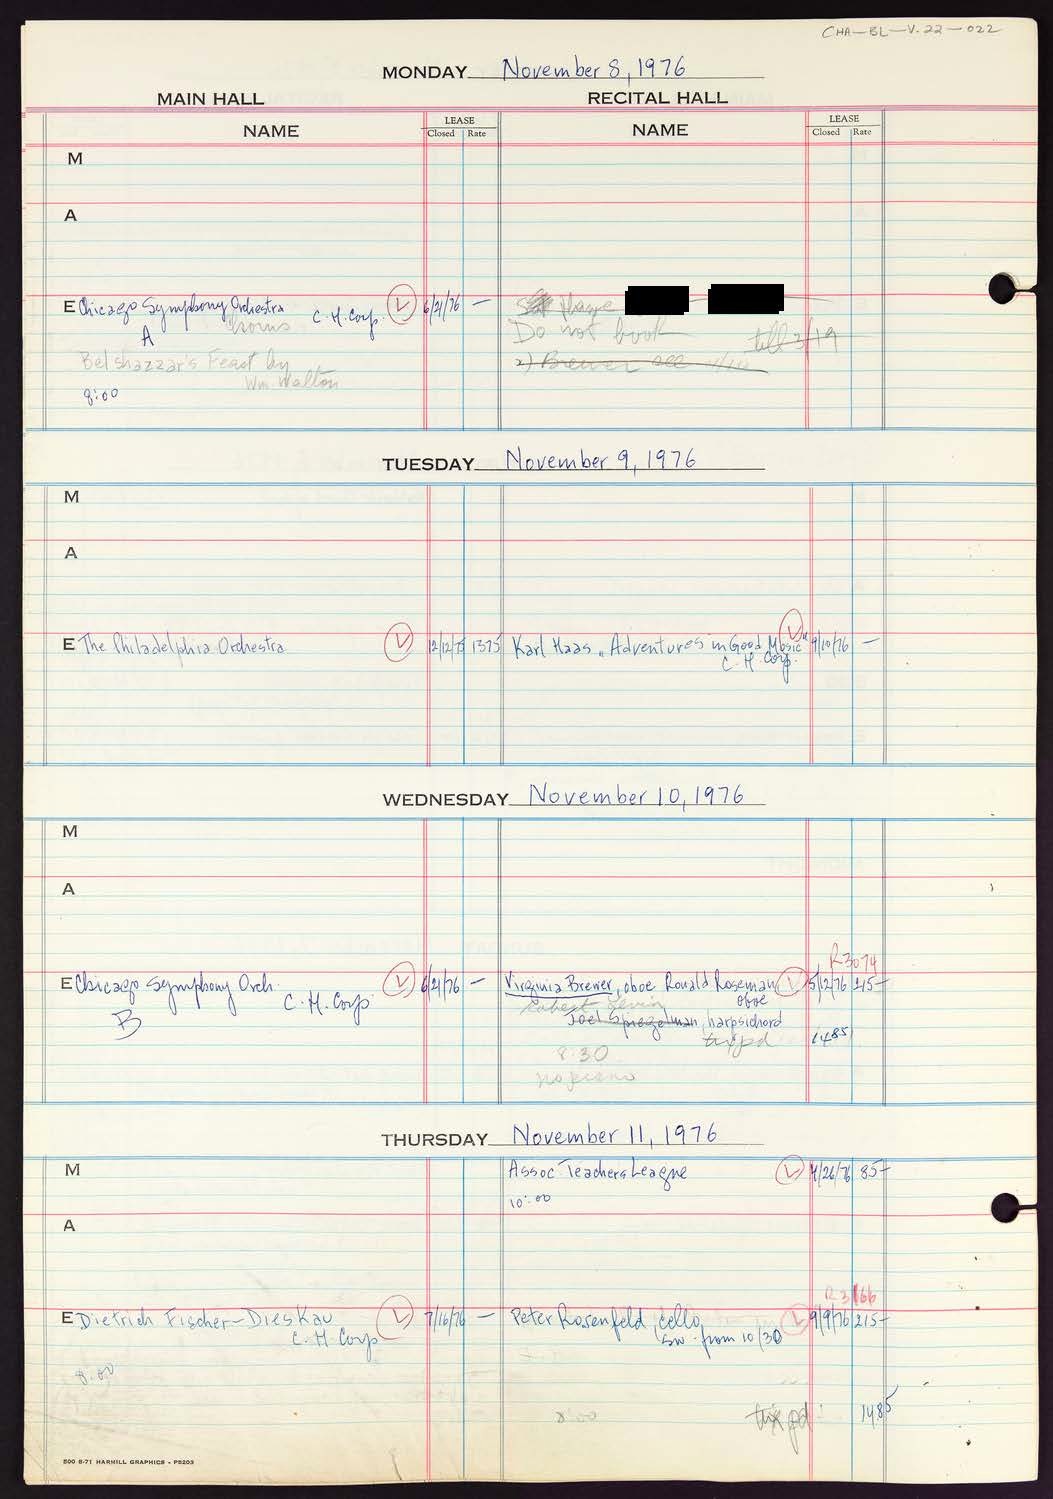 CHA-BL-V.22-022
MONDAY November 8, 1976
MAIN HALL
RECITAL HALL
NAME
LEASE
Closed Rate
NAME
LEASE
Closed Rate
M
A
E Chicago Symphony Orchestra
Chorus
C.H. Corp.
A
6/21/76 —
Belshazzar's Feast by
Wm. Walton
8:00
Do not book
till 3/19
2) Brewer
TUESDAY November 9, 1976
M
A
E The Philadelphia Orchestra
12/12/75 1375
Karl Haas "Adventures in Good Music"
C.H. Corp.
9/10/76 —
WEDNESDAY November 10, 1976
M
A
R3074
E Chicago Symphony Orch.
C.H. Corp
B
6/21/76 —
Virginia Brewer, oboe Ronald Roseman
oboe
5/12/76 215-
Joel Spiegelman, harpsichord
tix pd
1485
8:30
no piano
THURSDAY November 11, 1976
M
Assoc Teachers League
4/26/76 85-
10:00
A
R3166
E Dietrich Fischer-Dieskau
C.H. Corp
7/16/76 —
Peter Rosenfeld, cello
sw. from 10/30
9/9/76 215-
8:00
8:00
tix pd
1485
500 8-71 HARHILL GRAPHICS - P5203